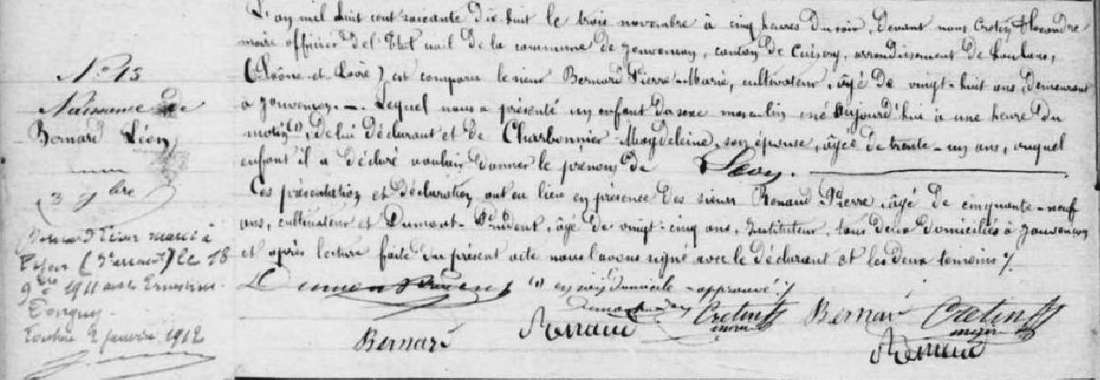 N° 13
Naissance de
Bernard Léon
3 9bre
Bernard Léon marié à
le 18
9bre 1911 avec Ernestine
Tonguy
2 janvier 1912
L'an mil huit cent soixante dix huit le trois novembre à cinq heures du soir, devant nous Cretin Alexandre
maire officier de l'état civil de la commune de Jouvençon, canton de Cuisery, arrondissement de Louhans,
(Saône-et-Loire) est comparu le sieur Bernard Pierre-Marie, cultivateur, âgé de vingt-huit ans, demeurant
à Jouvençon. Lequel nous a présenté un enfant du sexe masculin né aujourd'hui à une heure du
matin (1), de lui déclarant et de Charbonnier Magdeleine, son épouse, âgée de trente-un ans, auquel
enfant il a déclaré vouloir donner le prénom de Léon.
Ces présentation et déclaration ont eu lieu en présence des sieurs Renaud Pierre âgé de cinquante-neuf
ans, cultivateur et Dumont Prudent, âgé de vingt-cinq ans, Instituteur, tous deux domiciliés à Jouvençon
et après lecture faite du présent acte nous l'avons signé avec le déclarant et les deux témoins /.
Dumont Prudent (1) en son domicile approuvé /.
Bernard Renaud Cretin maire Bernard Cretin maire
Renaud